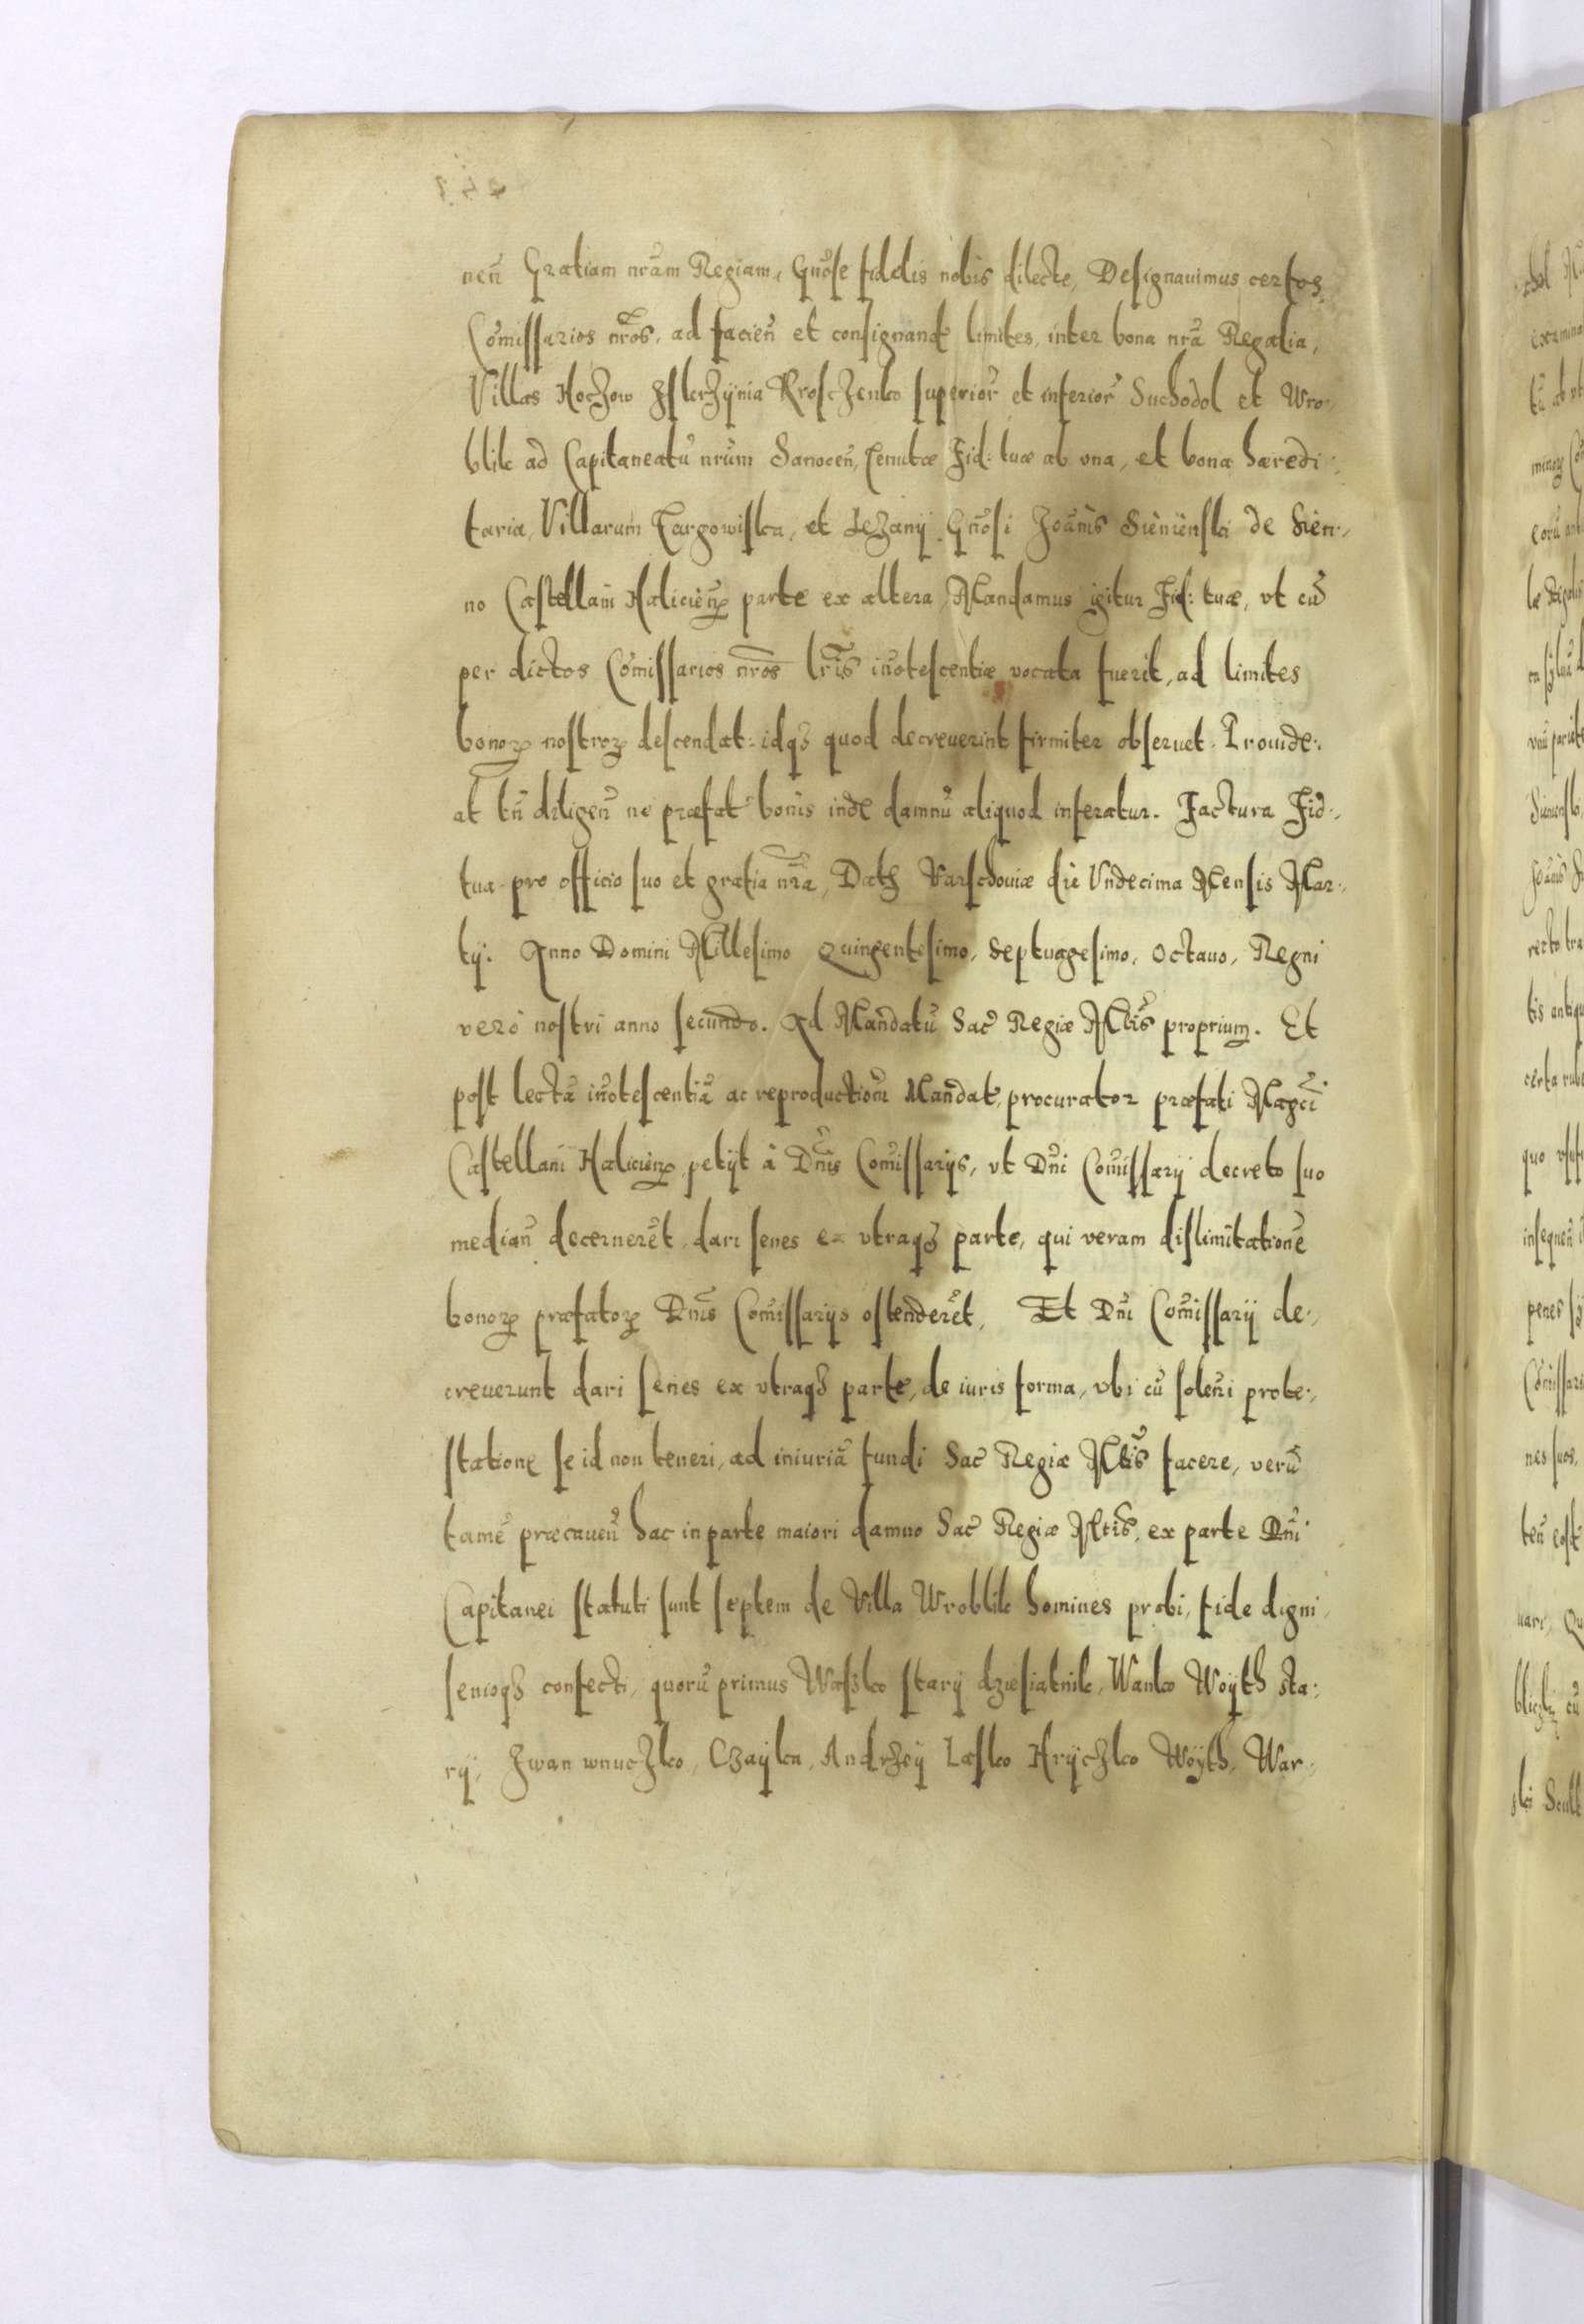 neñ Gratiam nrãm Regiam, Gñose fidelis nobis dilecte, Designauimus certos
Com̃issarios nr̃os, ad facieñ et consignand limites, inter bona nrã Regalia,
Villas superior̃ et inferior̃ Suchodol et Wro-,
blik ad Capitaneatũ nrũm Sanoceñ, tenutæ Fid: tuæ ab vna, et bona hæredi-,
taria, Villarum Targowiska, et Lezanÿ Gñosi Joãnis Sienienski de Sien-,
no Castellani Halicieñ parte ex altera, Mandamus igitur Fid: tuæ, vt cũ
per dictos Com̃issarios nr̃os lr̃is iñotescentiæ vocata fuerit, ad limites
bonoꝝ nostroꝝ descendat: idqꝫ quod decreuerint firmiter obseruet. Prouide-,
at tñ diligeñ ne præfat bonis inde damnũ aliquod inferatur. Factura Fid-,
tua pro officio suo et gratia nr̃a, Datꝫ Varschoviæ die Vndecima Mensis Mar-,
tÿ. Anno Domini Millesimo Quingentesimo, Septuagesimo, Octauo, Regni
vero nostri anno secundo. Ad Mandatũ Sac̃ Regiæ Mt̃is proprium. Et
post lectã iñotescentiã ac reproductionẽ Mandat, procurator præfati Magc̃i
Castellani Halicieñ petÿt à Dñis Com̃issarÿs, vt Dñi Com̃issarÿ decreto suo
mediañ decernerẽt, dari senes ex vtraqꝫ parte, qui veram dislimitationẽ
bonoꝝ præfatoꝝ Dñis Com̃issarÿs ostenderẽt, Et Dñi Com̃issarÿ de-,
creuerunt dari senes ex vtraqꝫ parte, de iuris forma, vbi cũ soleñi prote-,
statione se id non teneri, ad iniuriã fundi Sac̃ Regiæ Mt̃is facere, verũ
tamẽ præcaueñ hac in parte maiori damno Sac̃ Regiæ Mt̃is, ex parte Dñi
Capitanei statuti sunt septem de Villa Wroblik homines probi, fide digni,
senioqꝫ confecti, quorũ primus Waszko starÿ dziesiatnik, Wanko Woÿth sta-,
rÿ, Iwan wnuczko, Czaÿka, Andrzeÿ Lasko Hrÿczko Woÿth, War-,